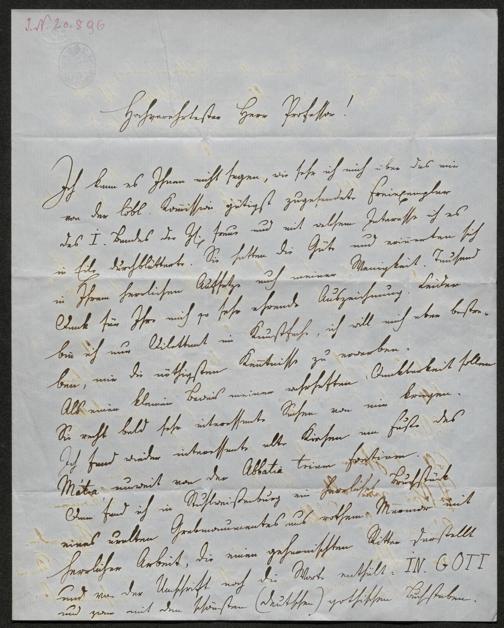 I.N. 20.896
Hochverehrtester Herr Professor!
Ich kann es Ihnen nicht sagen, wie sehr ich mich über das mir
von der löbl. Kommission gütigst zugesendete Freiexemplar
des I. Bandes der freue und mit welchem Interesse ich es
in Eile durchblätterte. Sie hatten die Güte und erinnerten sich
in Ihrem herrlichen Aufsatze auch meiner Wenigkeit. Tausend
Dank für Ihre mich so sehr ehrende Aufzeichnung! Leider
bin ich nur Dilettant im Kunstfache, ich will mich aber bestre-
ben, mir die nöthigsten Kentnisse zu erwerben.
Als einen kleinen Beweis meiner wahrhaften Dankbarkeit sollen
Sie recht bald sehr interessante Sachen von mir kriegen.
Ich fand wieder interessante alte Kirchen am Fuße des
Matra unweit von der Abbatia trium fontium.
Dann fand ich in Stuhlweißenburg ein herrliches Bruchstück
eines uralten Grabmonumentes aus rothem Marmor mit
herrlicher Arbeit, die einen geharnischten Ritter darstellt
und von der Umschrift noch die Worte enthält: IN. GOTT
und zwar mit den schönsten (deutschen) gothischen Buchstaben.